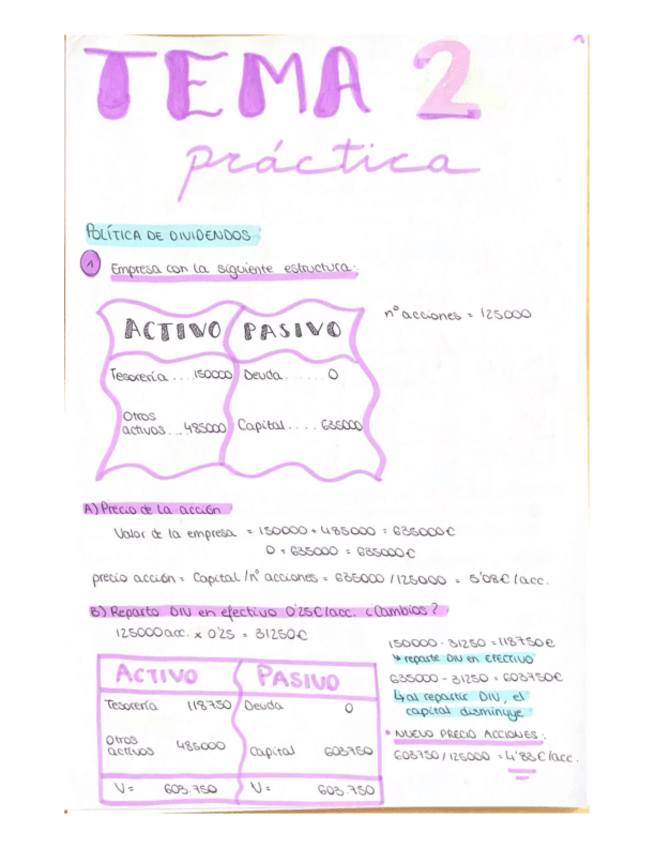 TEMA 2
práctica
POLÍTICA DE DIVIDENDOS
1 Empresa con la siguiente estructura:
ACTIVO PASIVO
nº acciones = 125000
Tesorería....150000 Deuda.......0
Otros
activos...485000 Capital....635000
A) Precio de la acción
Valor de la empresa = 150000 + 485000 = 635000€
0 + 635000 = 635000€
precio acción = Capital / nº acciones = 635000 / 125000 = 5'08€/acc.
B) Reparto DIV en efectivo 0'25€/acc. ¿Cambios?
125000 acc. x 0'25 = 31250€
ACTIVO PASIVO
Tesorería 118750 Deuda 0
Otros
activos 485000 Capital 603750
V= 603.750 V= 603.750
150000 - 31250 = 118750€
↳ reparte DIV en EFECTIVO
635000 - 31250 = 603750€
↳ al repartir DIV, el
capital disminuye
* NUEVO PRECIO ACCIONES:
603750 / 125000 = 4'83€/acc.